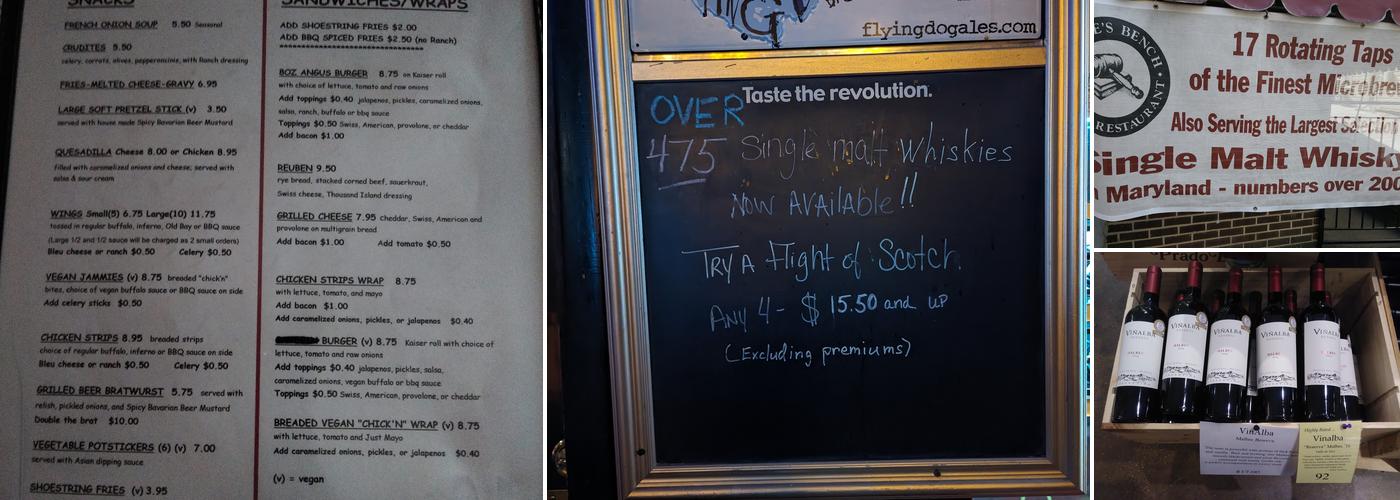 SNACKS
FRENCH ONION SOUP 5.50 Seasonal
CRUDITES 5.50
celery, carrots, olives, pepperoncinis, with Ranch dressing
FRIES-MELTED CHEESE-GRAVY 6.95
LARGE SOFT PRETZEL STICK (v) 3.50
served with house made Spicy Bavarian Beer Mustard
QUESADILLA Cheese 8.00 or Chicken 8.95
filled with caramelized onions and cheese, served with
salsa & sour cream
WINGS Small(5) 6.75 Large(10) 11.75
tossed in regular buffalo, inferno, Old Bay or BBQ sauce
(Large 1/2 and 1/2 sauce will be charged as 2 small orders)
Bleu cheese or ranch $0.50 Celery $0.50
VEGAN JAMMIES (v) 8.75 breaded "chick'n"
bites, choice of vegan buffalo sauce or BBQ sauce on side
Add celery sticks $0.50
CHICKEN STRIPS 8.95 breaded strips
choice of regular buffalo, inferno or BBQ sauce on side
Bleu cheese or ranch $0.50 Celery $0.50
GRILLED BEER BRATWURST 5.75 served with
relish, pickled onions, and Spicy Bavarian Beer Mustard
Double the brat $10.00
VEGETABLE POTSTICKERS (6) (v) 7.00
served with Asian dipping sauce
SHOESTRING FRIES (v) 3.95
SANDWICHES/WRAPS
ADD SHOESTRING FRIES $2.00
ADD BBQ SPICED FRIES $2.50 (no Ranch)
BOZ ANGUS BURGER 8.75 on Kaiser roll
with choice of lettuce, tomato and raw onions
Add toppings $0.40 jalapenos, pickles, caramelized onions,
salsa, ranch, buffalo or bbq sauce
Toppings $0.50 Swiss, American, provolone, or cheddar
Add bacon $1.00
REUBEN 9.50
rye bread, stacked corned beef, sauerkraut,
Swiss cheese, Thousand Island dressing
GRILLED CHEESE 7.95 Cheddar, Swiss, American and
provolone on multigrain bread
Add bacon $1.00 Add tomato $0.50
CHICKEN STRIPS WRAP 8.75
with lettuce, tomato, and mayo
Add bacon $1.00
Add caramelized onions, pickles, or jalapenos $0.40
BURGER (v) 8.75 Kaiser roll with choice of
lettuce, tomato and raw onions
Add toppings $0.40 jalapenos, pickles, salsa,
caramelized onions, vegan buffalo or bbq sauce
Toppings $0.50 Swiss, American, provolone, or cheddar
BREADED VEGAN "CHICK'N" WRAP (v) 8.75
with lettuce, tomato and Just Mayo
Add caramelized onions, pickles, or jalapenos $0.40
(v) = vegan
flyingdogales.com
Taste the revolution.
OVER
475 Single malt Whiskies
NOW AVAilABle!!
TRY A Flight of Scotch
ANY 4- $15.50 and up
(Excluding premiums)
E'S BENCH
RESTAURANT
17 Rotating Taps
of the Finest Microbrew
Also Serving the Largest Selection
Single Malt Whisk
Maryland - numbers over 200
VIÑALBA
VIÑALBA
VIÑALBA
VIÑALBA
VIÑALBA
MALBEC
VinAlba
Malbec Reserva
Highly Rated
Vinalba
"Reserva" Malbec
92